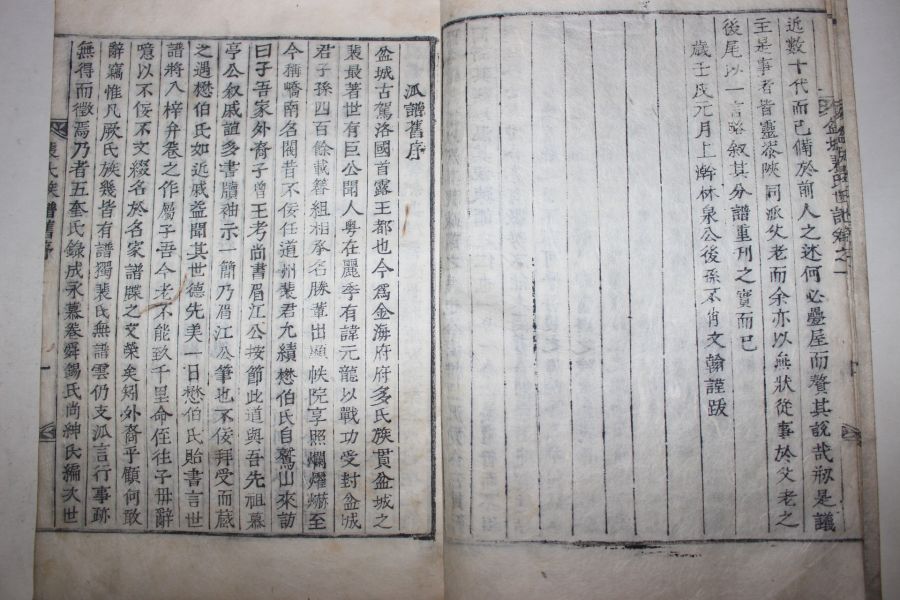 近數十代而已備於前人之述何必疊屋而贅其說哉刱是議
主是事者皆靈泰陜同派父老而余亦以無狀從事於父老之
後尾以一言略叙其分譜重刊之實而已
歲壬戌元月上澣林泉公後孫不肖文翰謹跋
派譜舊序
盆城古駕洛國首露王都也今爲金海府府多氏族貫盆城之
裴最著世有巨公聞人粤在麗季有諱元龍以戰功受封盆城
君子孫四百餘載簪組相承名勝輩出顯帙院享照爛燿爀至
今稱嶠南名閥昔不佞任道州裴君允績懋伯氏自鷲山來訪
曰子吾家外裔子曾王考尚書眉江公按節此道與吾先祖慕
亭公叙戚誼多書牘袖示一簡乃眉江公筆也不佞拜受而藏
之遇懋伯氏如近戚益聞其世德先美一日懋伯氏貽書言世
譜將入梓弁卷之作屬子吾今老不能致千里命侄往子毋辭
噫以不佞不文綴名於名家譜牒之文榮矣矧外裔乎顧何敢
辭竊惟凡厥氏族幾皆有譜獨裴氏無譜雲仍支派言行事跡
無得而徵焉乃者五奎氏錄成永慕卷舜錫氏尚紳氏編次世
裴氏族譜舊序